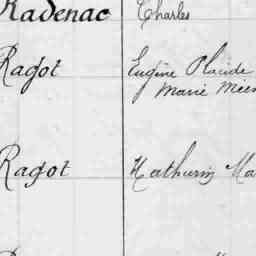 Radenac Charles
Ragot Eugène Placide
Marie
Ragot Mathurin